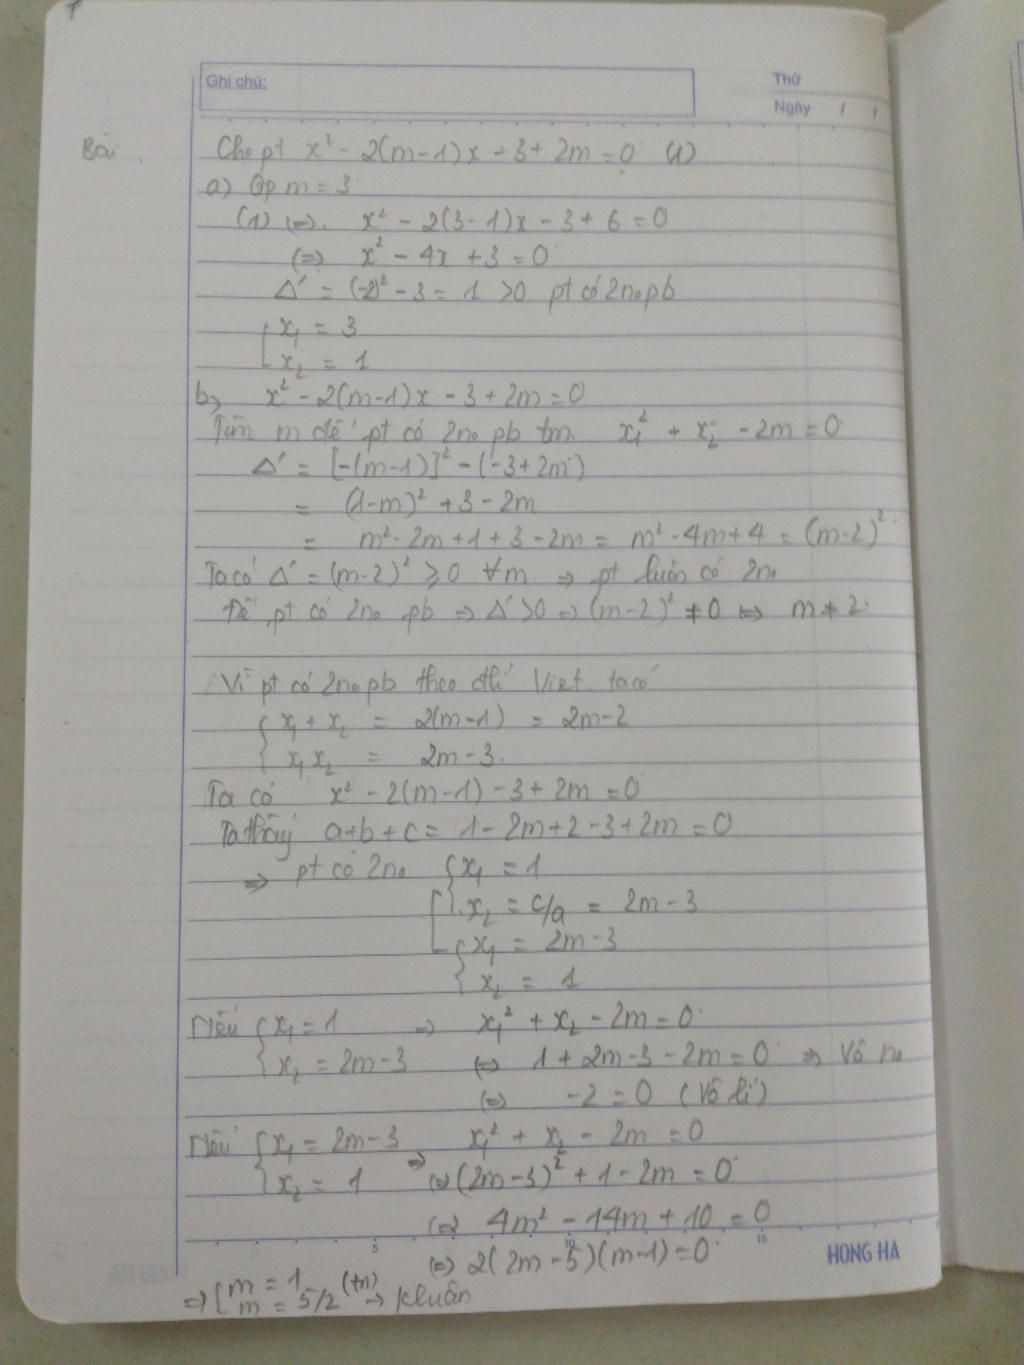 Ghi chú:
Thứ
Ngày / /
Bài
Cho pt x² - 2(m-1)x - 3 + 2m = 0 (1)
a) Gp m = 3
(1) (=) x² - 2(3-1)x - 3 + 6 = 0
(=) x² - 4x + 3 = 0
Δ' = (-2)² - 3 = 1 > 0 pt có 2no pb
[ x₁ = 3
x₂ = 1
b, x² - 2(m-1)x - 3 + 2m = 0
Tìm m để pt có 2no pb tm x₁² + x₂ - 2m = 0
Δ' = [-(m-1)]² - (-3+2m)
= (1-m)² + 3 - 2m
= m² - 2m + 1 + 3 - 2m = m² - 4m + 4 = (m-2)²
Ta có Δ' = (m-2)² ⩾ 0 ∀m => pt luôn có 2no
Để pt có 2no pb => Δ' > 0 => (m-2)² ≠ 0 <=> m ≠ 2
Vì pt có 2no pb theo đlí Viet ta có
{ x₁ + x₂ = 2(m-1) = 2m-2
x₁x₂ = 2m-3
Ta có x² - 2(m-1) - 3 + 2m = 0
Ta thấy a+b+c = 1 - 2m + 2 - 3 + 2m = 0
=> pt có 2no { x₁ = 1
[ x₂ = c/a = 2m-3
{ x₁ = 2m-3
x₂ = 1
Nếu { x₁ = 1 => x₁² + x₂ - 2m = 0
x₂ = 2m-3 (=) 1 + 2m - 3 - 2m = 0 => Vô no
(=) -2 = 0 (Vô lí)
Nếu { x₁ = 2m-3 x₁² + x₂ - 2m = 0
x₂ = 1 => (=) (2m-3)² + 1 - 2m = 0
(=) 4m² - 14m + 10 = 0
5 10 15
HONG HA
(=) 2(2m-5)(m-1) = 0
=> [ m = 1 (tm)
m = 5/2 -> Kluân